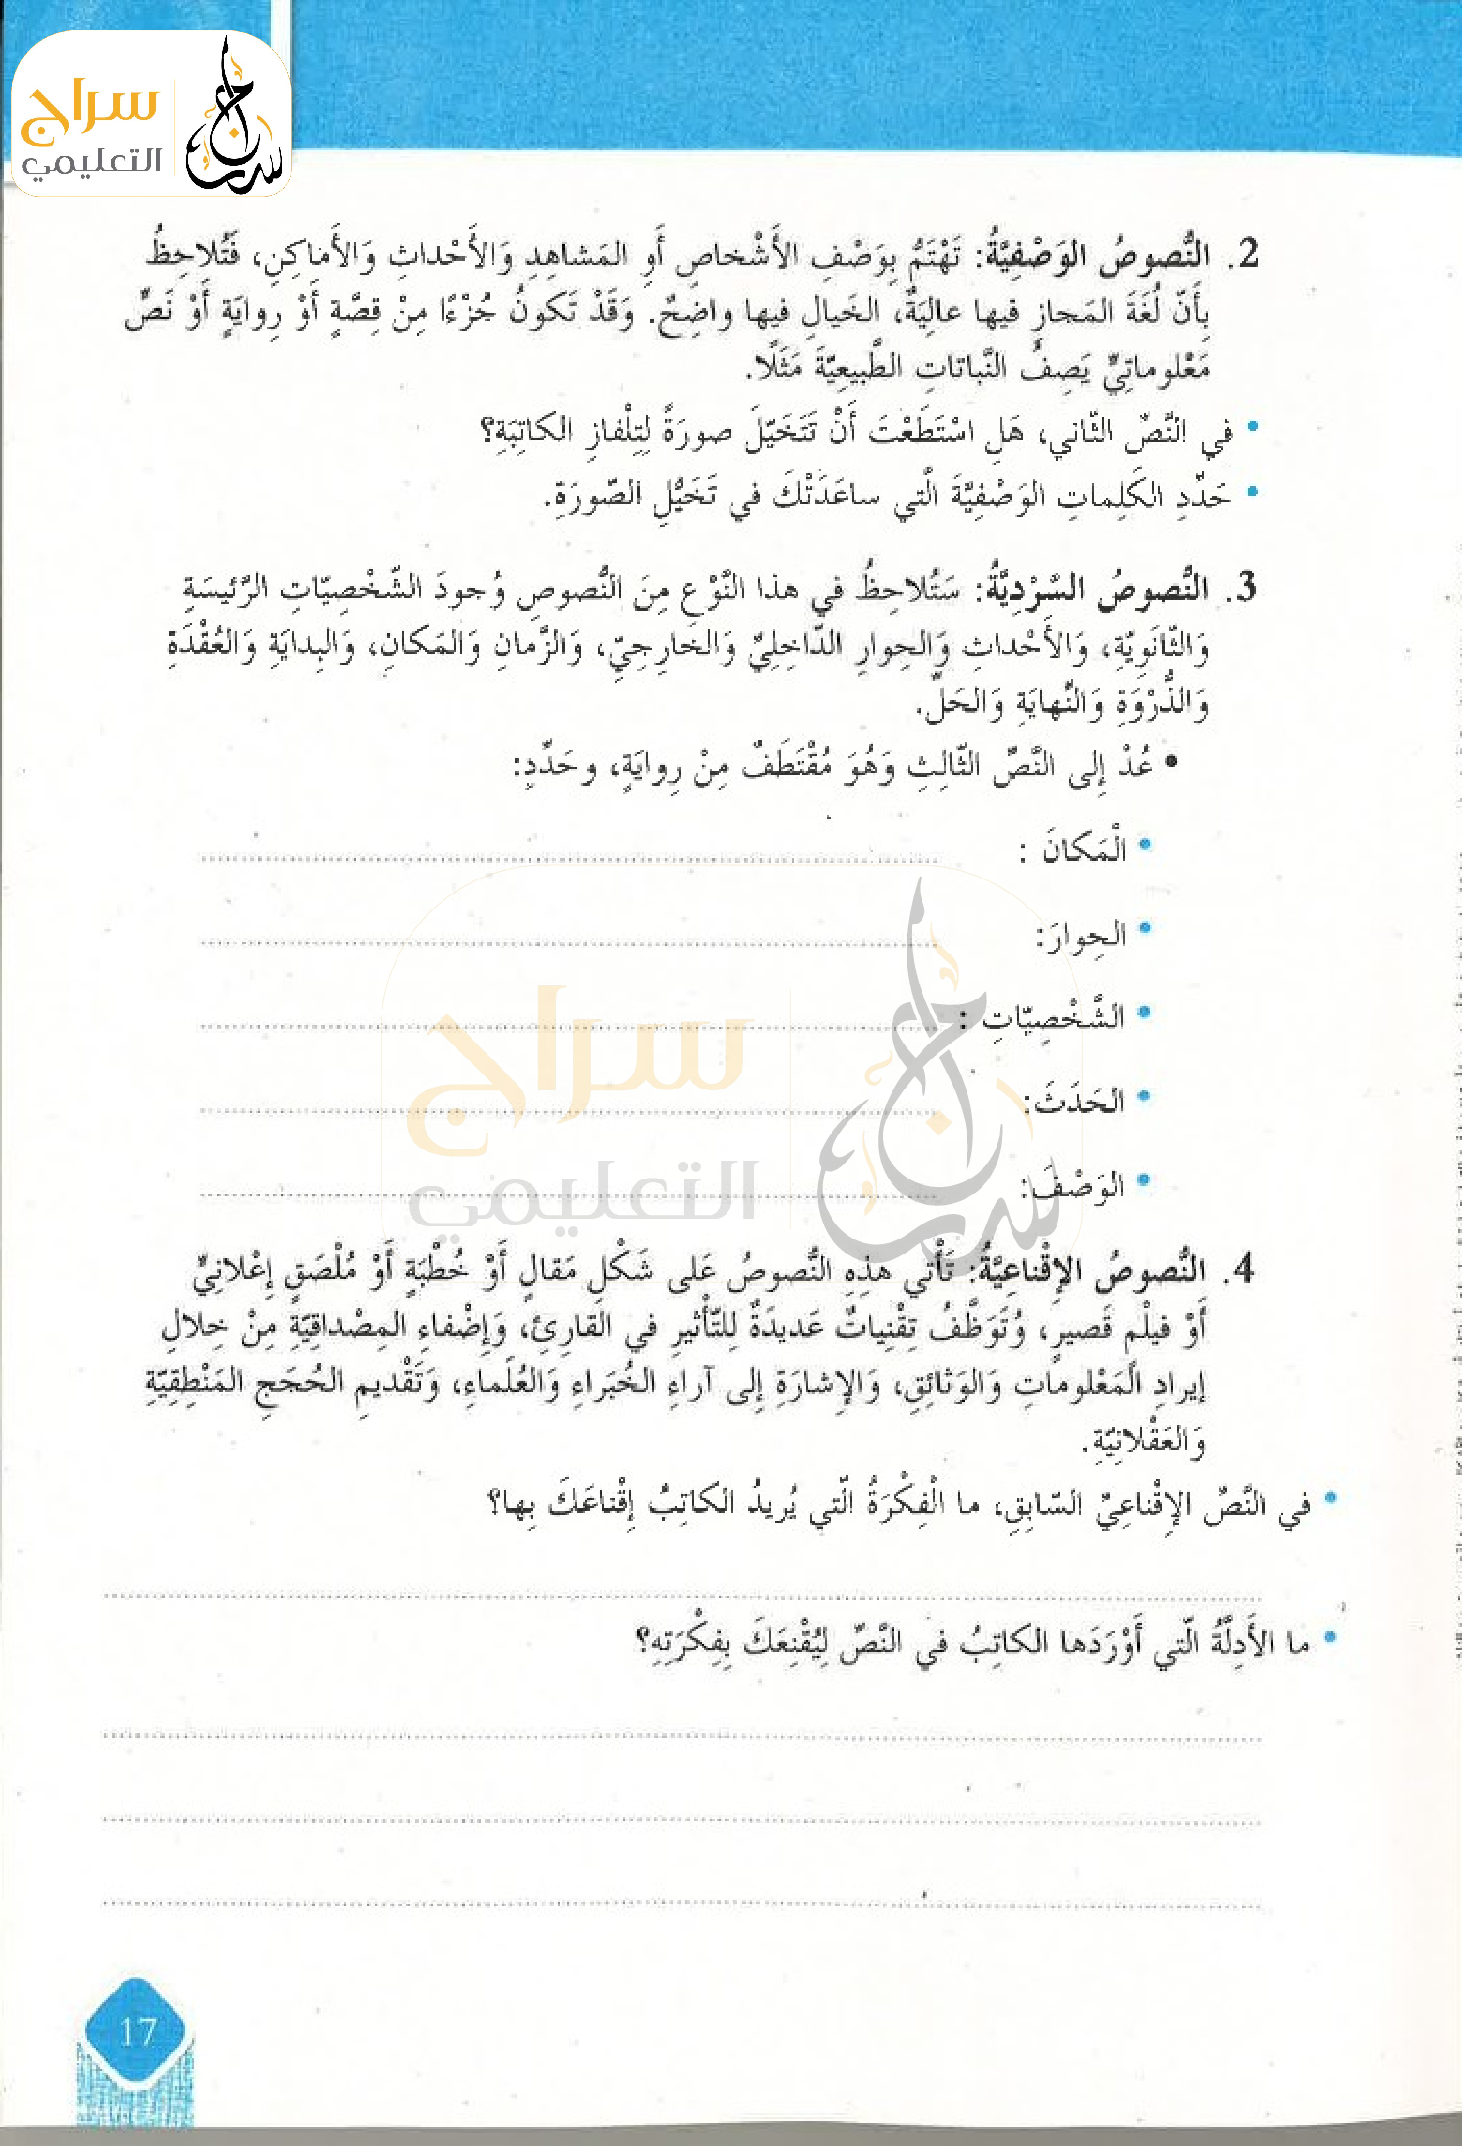 سراج
التعليمي
2. النُّصوصُ الوَصْفِيَّةُ: تَهْتَمُّ بِوَصْفِ الأَشْخاصِ أَوِ المَشاهِدِ وَالأَحْداثِ وَالأَماكِنِ، فَتُلاحِظُ
بِأَنّ لُغَةَ المَجازِ فيها عالِيَةٌ، الخَيالِ فيها واضِحٌ. وَقَدْ تَكونُ جُزْءًا مِنْ قِصَّةٍ أَوْ رِوايَةٍ أَوْ نَصٍّ
مَعْلوماتِيٍّ يَصِفُ النَّباتاتِ الطَّبيعِيّةَ مَثَلًا.
• في النَّصِّ الثّاني، هَلِ اسْتَطَعْتَ أَنْ تَتَخَيّلَ صورَةً لِتِلْفازِ الكاتِبَةِ؟
• حَدِّدِ الكَلِماتِ الوَصْفِيَّةَ الَّتي ساعَدَتْكَ في تَخَيُّلِ الصّورَةِ.
3. النُّصوصُ السَّرْدِيَّةُ: سَتُلاحِظُ في هذا النَّوْعِ مِنَ النُّصوصِ وُجودَ الشَّخْصِيّاتِ الرَّئيسَةِ
وَالثّانَوِيّةِ، وَالأَحْداثِ وَالحِوارِ الدّاخِلِيِّ وَالخارِجِيِّ، وَالزَّمانِ وَالمَكانِ، وَالبِدايَةِ وَالعُقْدَةِ
وَالذُّرْوَةِ وَالنِّهايَةِ وَالحَلِّ.
• عُدْ إِلى النَّصِّ الثّالِثِ وَهُوَ مُقْتَطَفٌ مِنْ رِوايَةٍ، وحَدِّدِ:
• الْمَكانَ :
• الحِوارَ:
• الشَّخْصِيّاتِ :
• الحَدَثَ:
• الوَصْفَ:
سراج
التعليمي
4. النُّصوصُ الإِقْناعِيَّةُ: تَأْتي هذِهِ النُّصوصُ عَلى شَكْلِ مَقالٍ أَوْ خُطْبَةٍ أَوْ مُلْصَقٍ إِعْلانِيٍّ
أَوْ فيلْمٍ قَصيرٍ، وُتَوَظِّفُ تِقْنِياتٌ عَديدَةٌ لِلتَّأْثيرِ في القارِئِ، وَإِضْفاءِ المِصْداقِيّةِ مِنْ خِلالِ
إيرادِ الْمَعْلوماتِ وَالوَثائِقِ، وَالإِشارَةِ إِلى آراءِ الخُبَراءِ وَالعُلَماءِ، وَتَقْديمِ الحُجَجِ المَنْطِقِيّةِ
وَالعَقْلانِيّةِ.
• في النَّصِّ الإِقْناعِيِّ السّابِقِ، ما الْفِكْرَةُ الَّتي يُريدُ الكاتِبُ إِقْناعَكَ بِها؟
• ما الأَدِلَّةُ الَّتي أَوْرَدَها الكاتِبُ في النَّصِّ لِيُقْنِعَكَ بِفِكْرَتِهِ؟
17